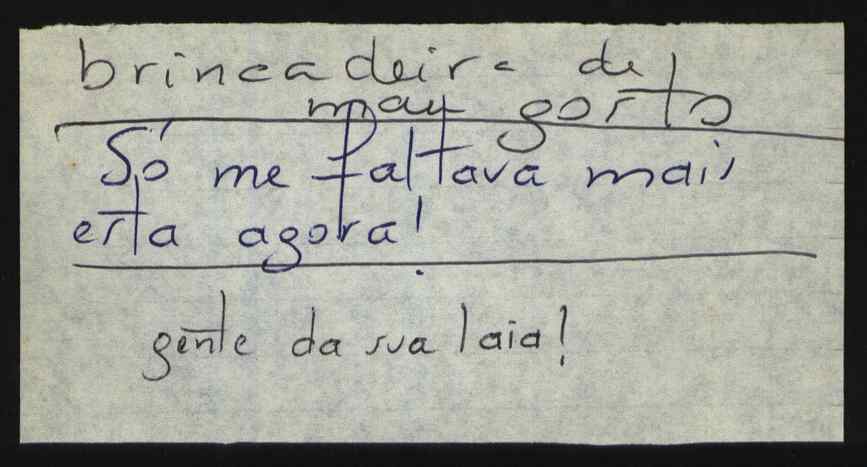 brincadeira de
mau gosto
Só me faltava mais
esta agora!
gente da sua laia!